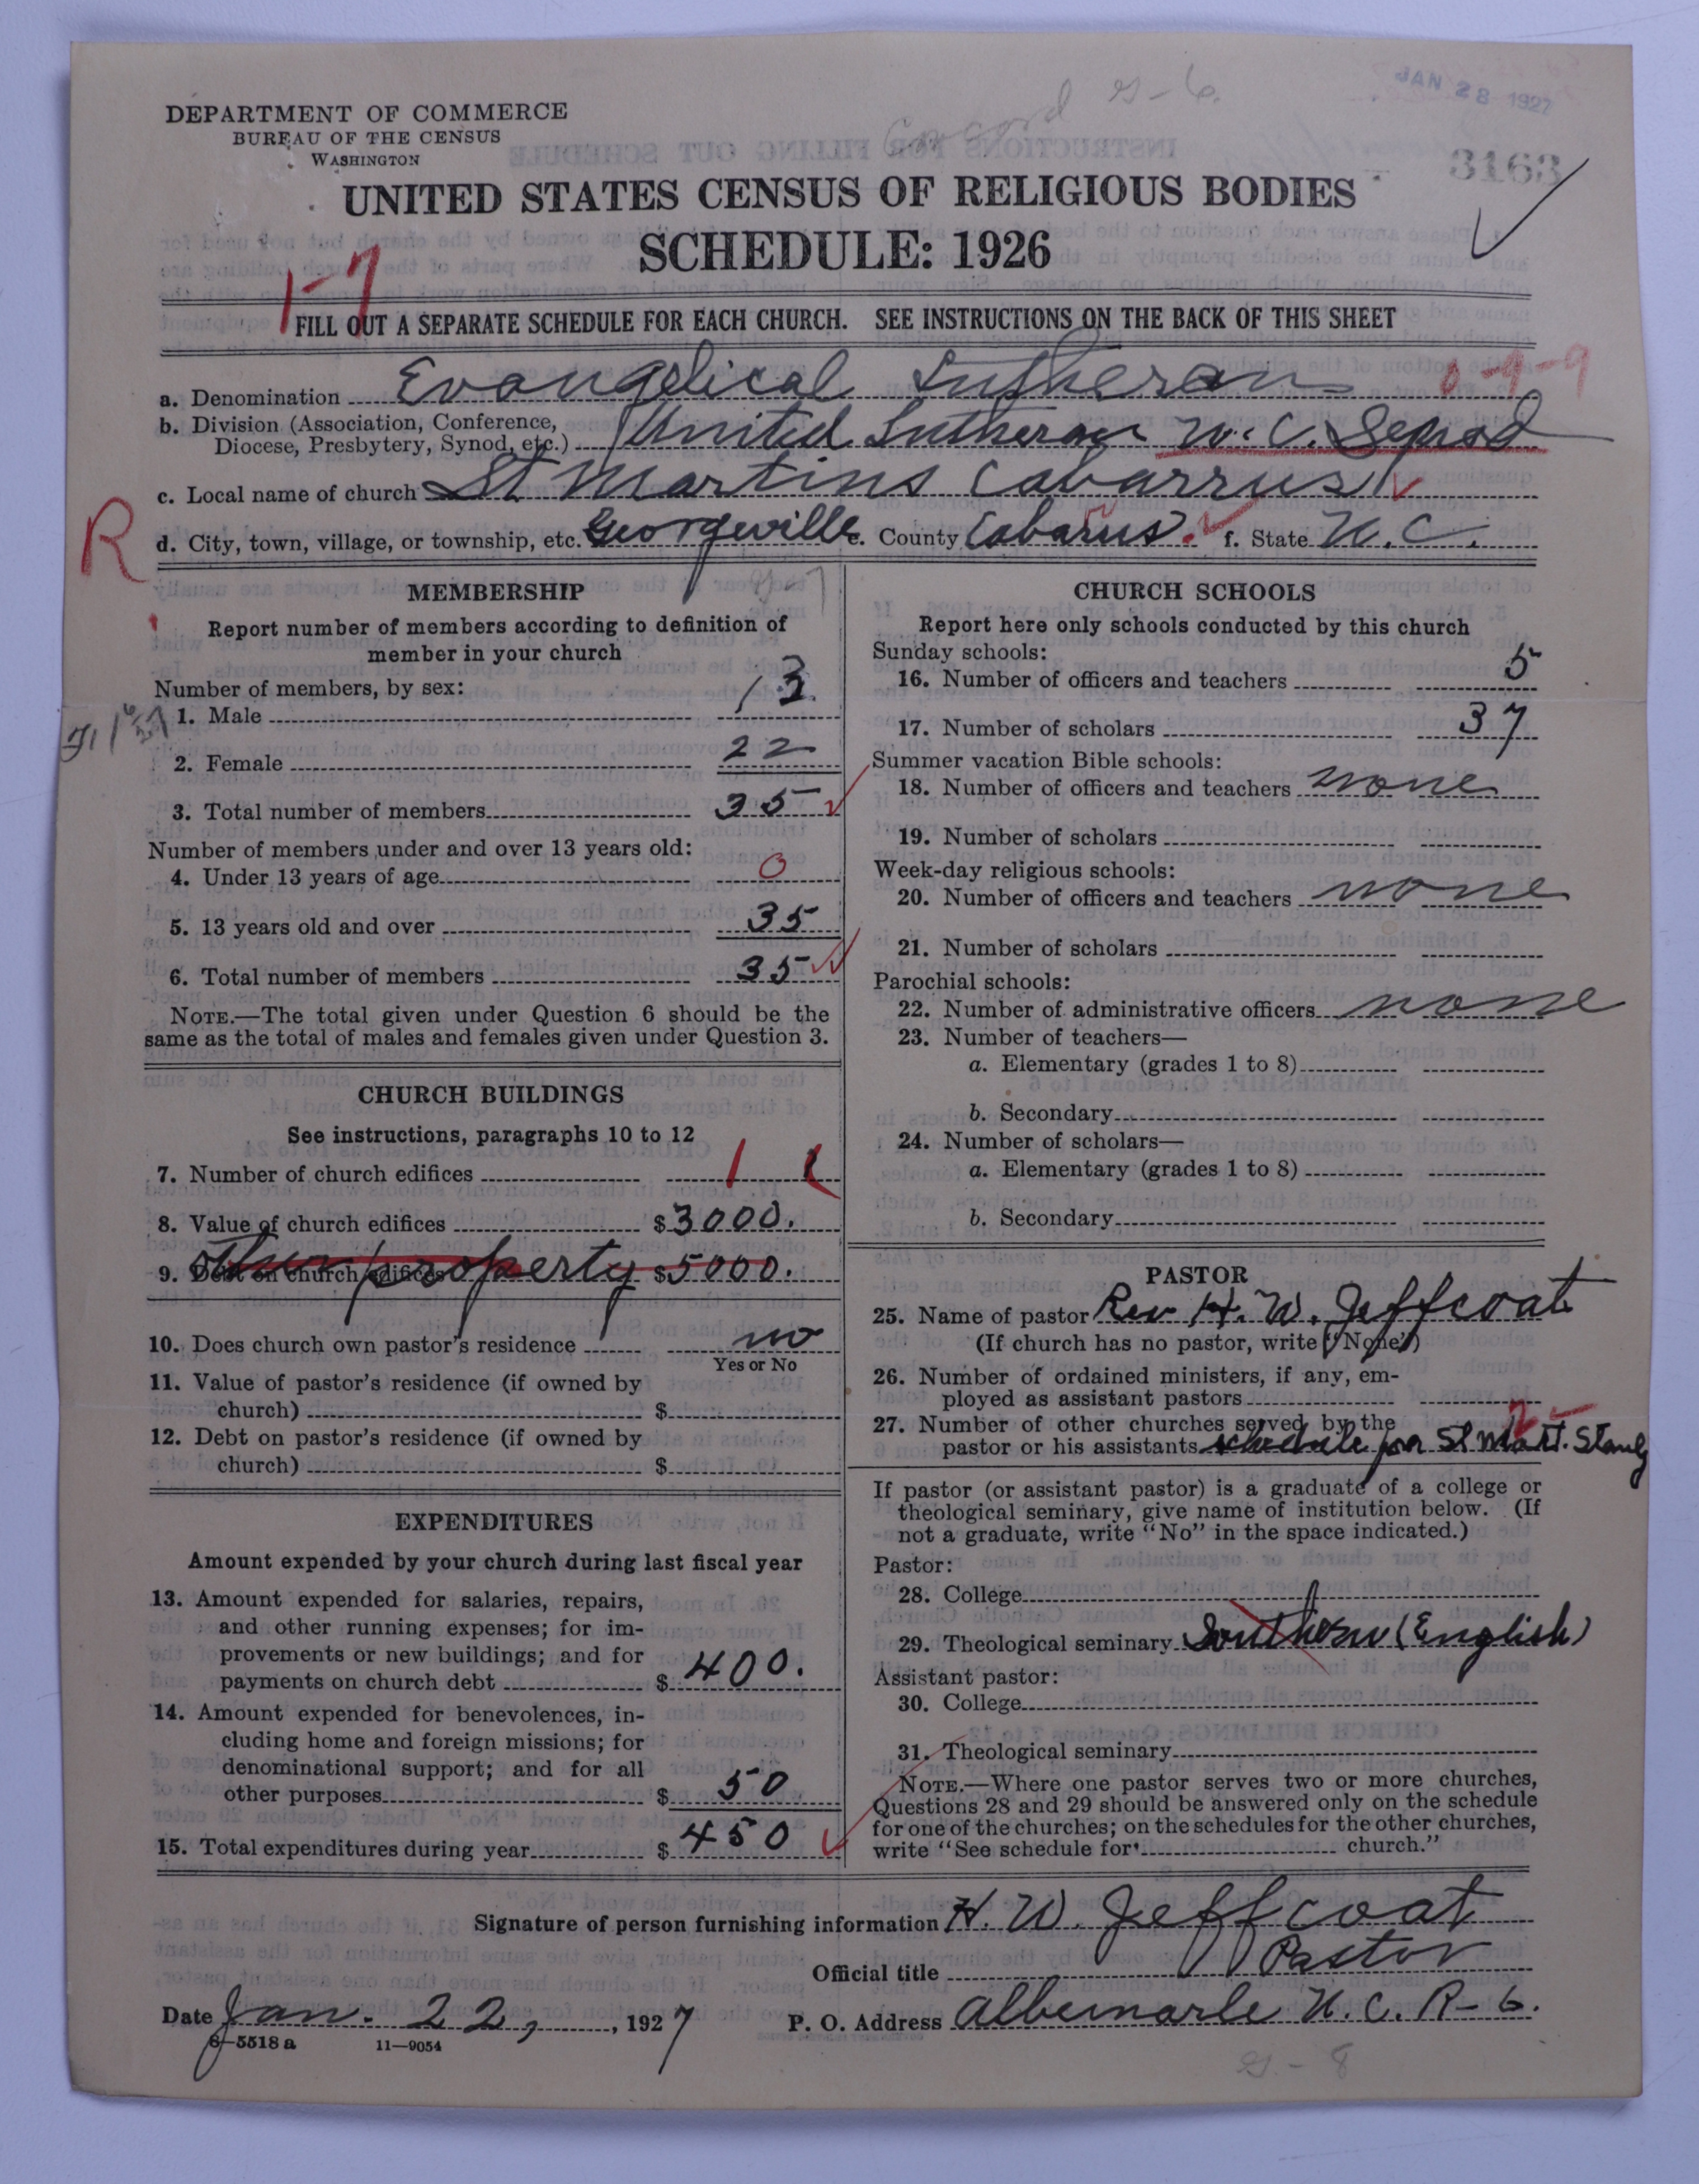 JAN 28 1927
Concord
DEPARTMENT OF COMMERCE
BUREAU OF THE CENSUS
WASHINGTON
3163
UNITED STATES CENSUS OF RELIGIOUS BODIES
SCHEDULE: 1926
1-7
FILL OUT A SEPARATE SCHEDULE FOR EACH CHURCH. SEE INSTRUCTIONS ON THE BACK OF THIS SHEET
a. Denomination Evangelical Lutheran 0-4-9
b. Division (Association, Conference,
Diocese, Presbytery, Synod, etc.) United Lutheran N.C. Synod
c. Local name of church St Martins Cabarrus
R
d. City, town, village, or township, etc. Georgeville e. County Cabarus. f. State N.C.
MEMBERSHIP
Report number of members according to definition of
member in your church
Number of members, by sex:
1. Male 13
2. Female 22
3. Total number of members 35
Number of members under and over 13 years old:
4. Under 13 years of age 0
5. 13 years old and over 35
6. Total number of members 35
NOTE.—The total given under Question 6 should be the
same as the total of males and females given under Question 3.
CHURCH BUILDINGS
See instructions, paragraphs 10 to 12
7. Number of church edifices 1
8. Value of church edifices $3000.
9. Debt on church edifices Other property $5000.
10. Does church own pastor's residence no
Yes or No
11. Value of pastor's residence (if owned by
church) $
12. Debt on pastor's residence (if owned by
church) $
EXPENDITURES
Amount expended by your church during last fiscal year
13. Amount expended for salaries, repairs,
and other running expenses; for im-
provements or new buildings; and for
payments on church debt $ 400.
14. Amount expended for benevolences, in-
cluding home and foreign missions; for
denominational support; and for all
other purposes $ 50
15. Total expenditures during year $ 450
CHURCH SCHOOLS
Report here only schools conducted by this church
Sunday schools:
16. Number of officers and teachers 5
17. Number of scholars 37
Summer vacation Bible schools:
18. Number of officers and teachers none
19. Number of scholars
Week-day religious schools:
20. Number of officers and teachers none
21. Number of scholars
Parochial schools:
22. Number of administrative officers none
23. Number of teachers—
a. Elementary (grades 1 to 8)
b. Secondary
24. Number of scholars—
a. Elementary (grades 1 to 8)
b. Secondary
PASTOR
25. Name of pastor Rev H. W. Jeffcoat
(If church has no pastor, write "None")
26. Number of ordained ministers, if any, em-
ployed as assistant pastors
27. Number of other churches served by the
pastor or his assistants schedule for St Mart. Stanly
If pastor (or assistant pastor) is a graduate of a college or
theological seminary, give name of institution below. (If
not a graduate, write "No" in the space indicated.)
Pastor:
28. College
29. Theological seminary Southern (English)
Assistant pastor:
30. College
31. Theological seminary
NOTE.—Where one pastor serves two or more churches,
Questions 28 and 29 should be answered only on the schedule
for one of the churches; on the schedules for the other churches,
write "See schedule for church."
Signature of person furnishing information H. W. Jeffcoat
Official title Pastor
Date Jan. 22, , 1927 P. O. Address Albemarle N.C. R-6.
8-5518 a 11—9054